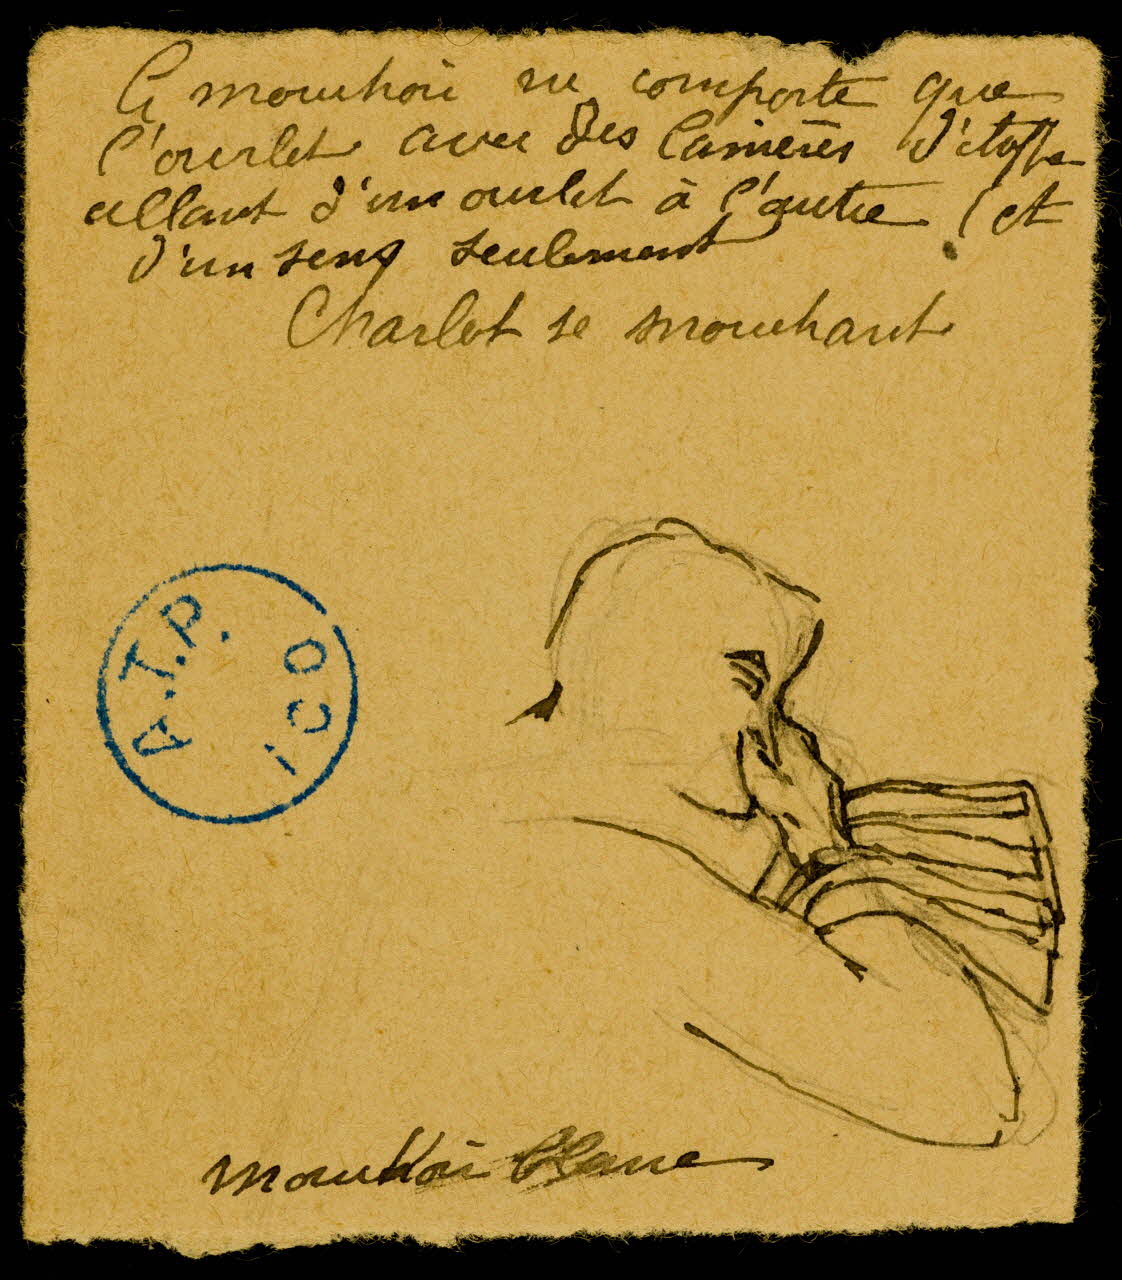 Ce mouchoir ne comporte que
l'ourlet avec des lanières d'étoffe
allant d'un ourlet à l'autre (et
d'un sens seulement.
Charlot se mouchant
A.T.P.
ICO
mouchoir blanc